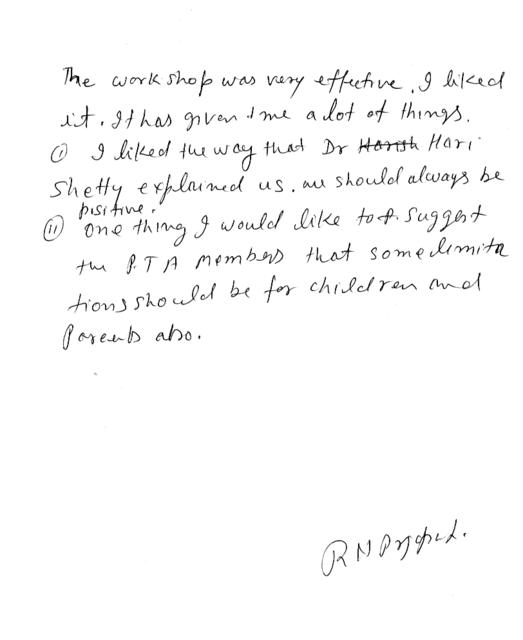 The workshop was very effective. I liked
it. It has given me a lot of things.
(i) I liked the way that Dr Harish Hari
Shetty explained us. we should always be
pisitive.
(ii) One thing I would like to suggest
the P.T A members that some limita
tions should be for children and
Parents also.
R N